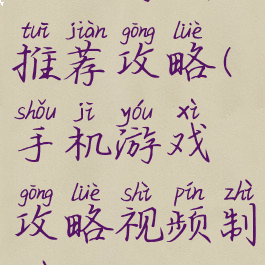 tuī jiàn gōng lüè
推荐攻略(
shǒu jī yóu xì
手机游戏
gōng lüè shì pín zhì
攻略视频制